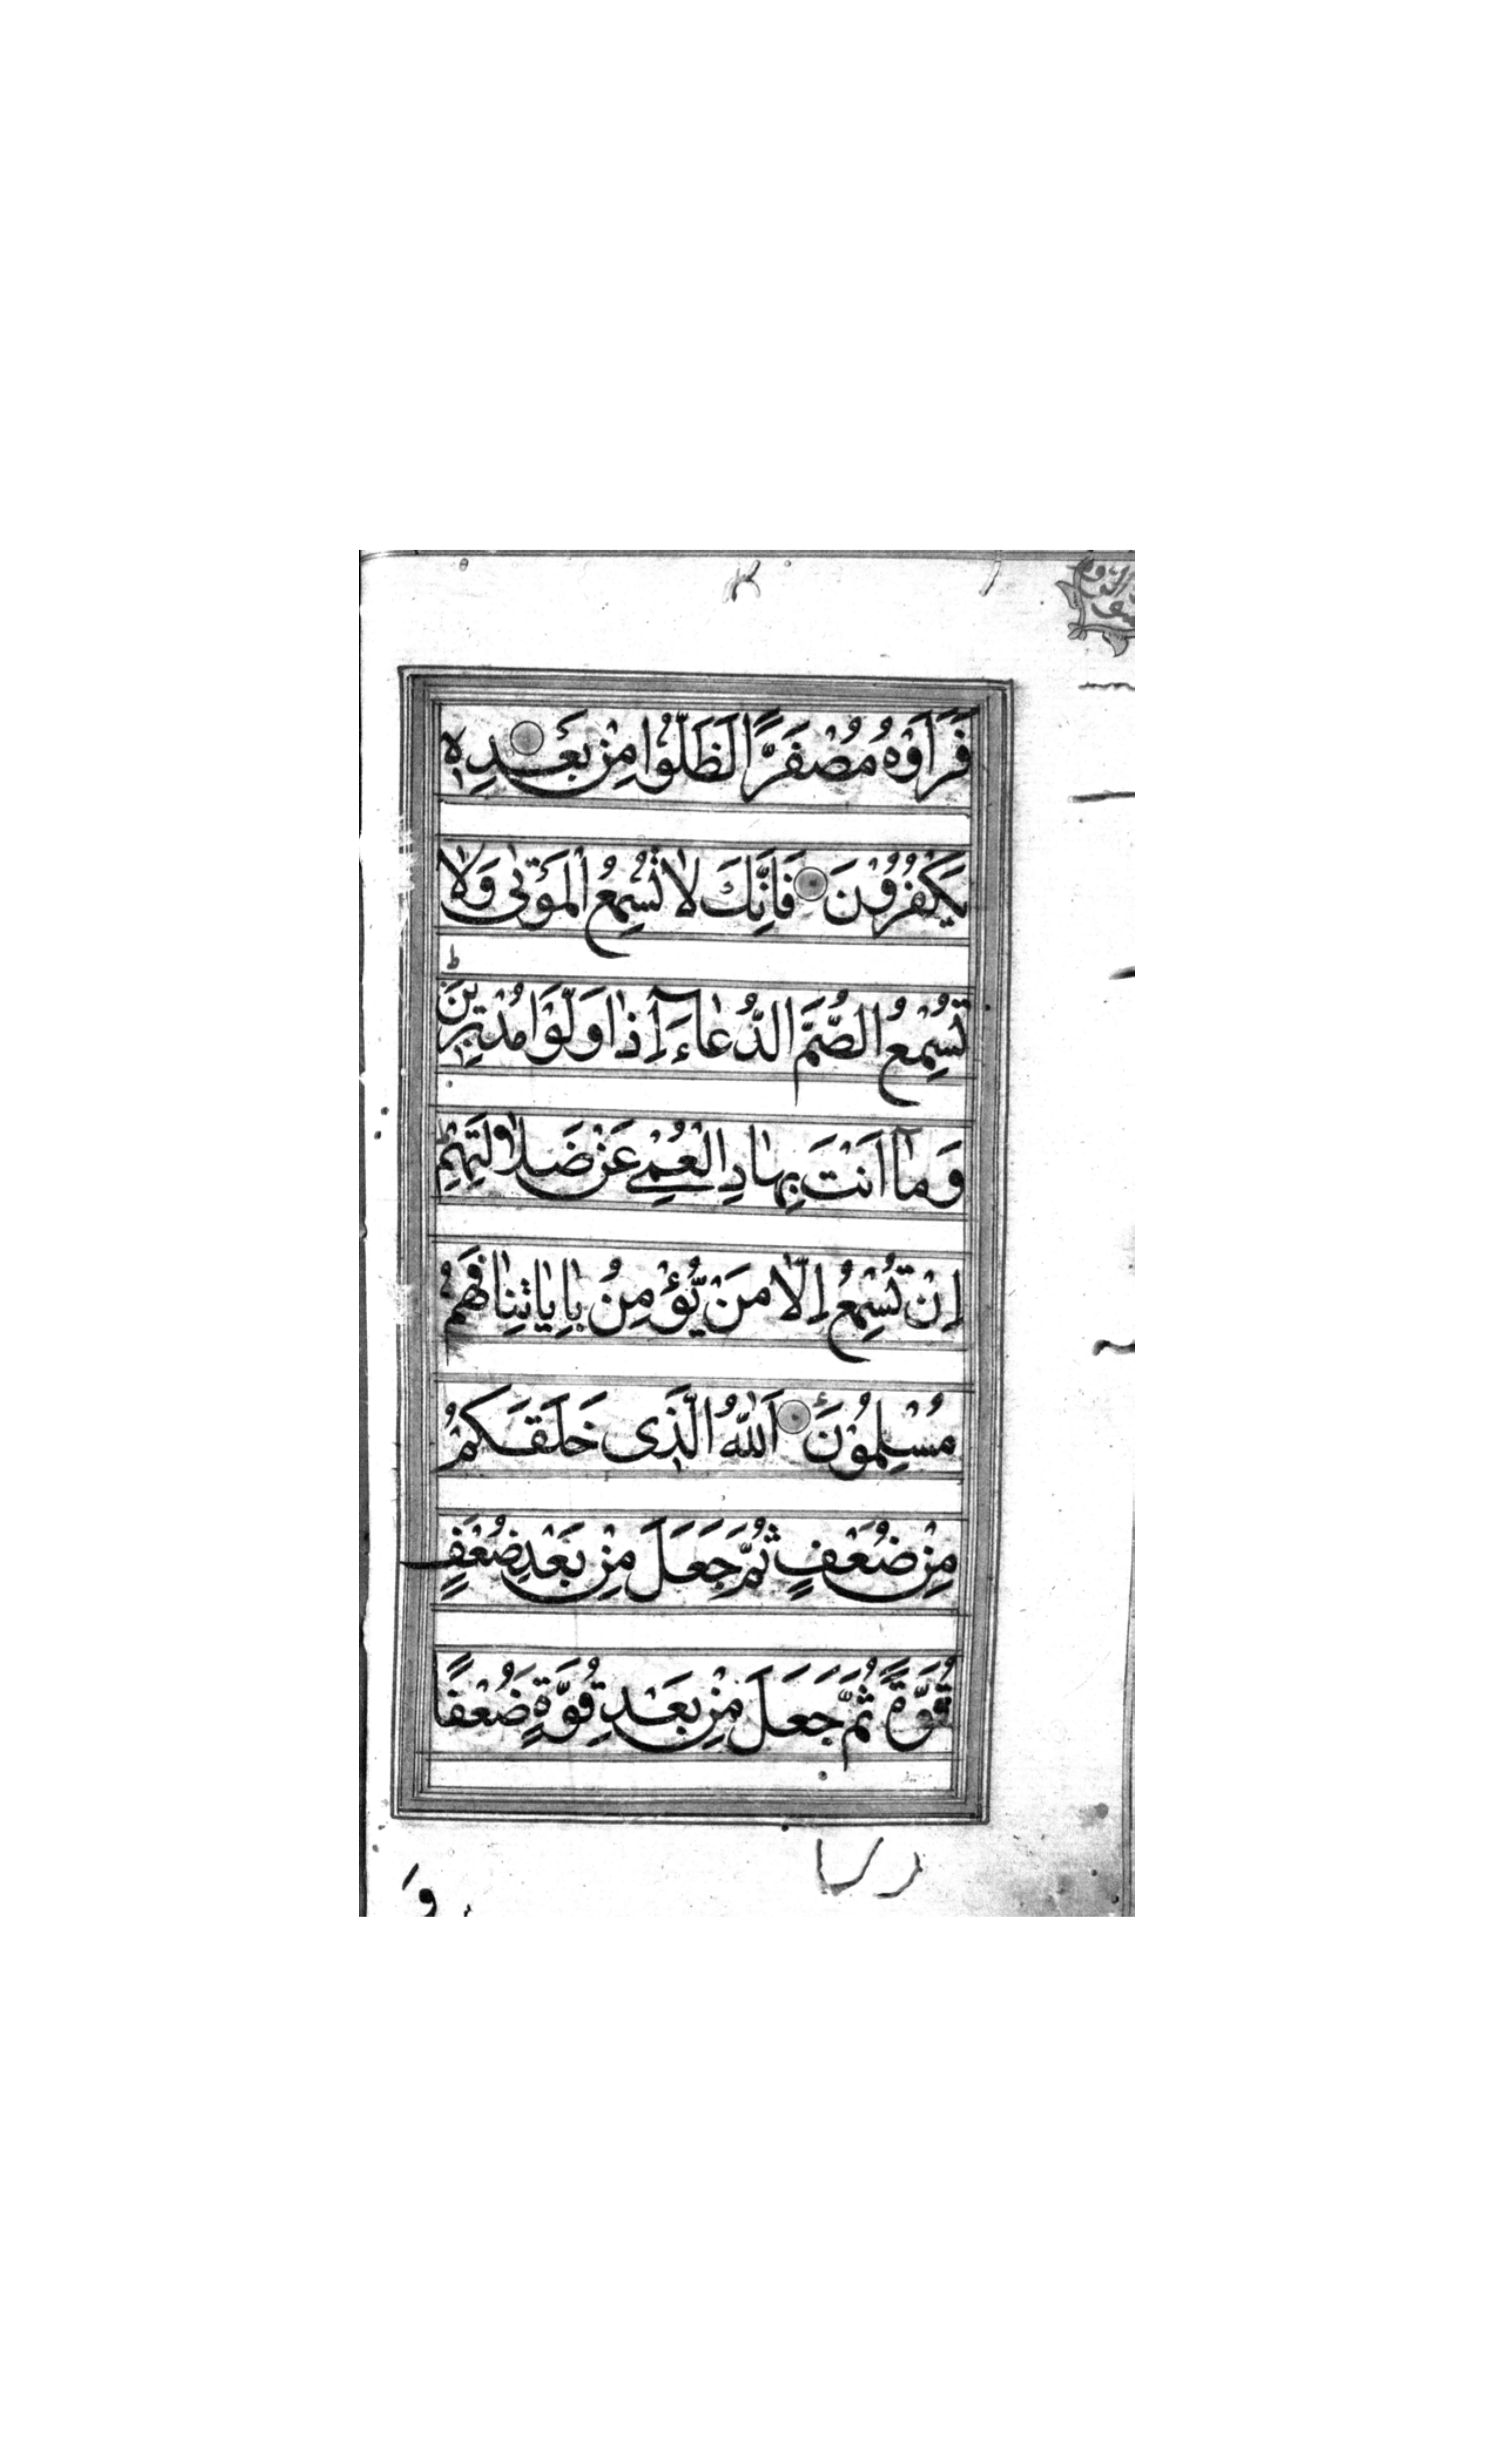 فَرَاَوْهُ مُصْفَرًّا لَظَلُّوْا مِنْ بَعْدِهٖ
يَكْفُرُوْنَ فَاِنَّكَ لَا تُسْمِعُ الْمَوْتٰى وَلَا
تُسْمِعُ الصُّمَّ الدُّعَاۤءَ اِذَا وَلَّوْا مُدْبِرِيْنَ
وَمَاۤ اَنْتَ بِهَادِ الْعُمْيِ عَنْ ضَلَالَتِهِمْ ط
اِنْ تُسْمِعُ اِلَّا مَنْ يُّؤْمِنُ بِاٰيَاتِنَا فَهُمْ
مُسْلِمُوْنَ اَللّٰهُ الَّذِى خَلَقَكُمْ
مِنْ ضُعْفٍ ثُمَّ جَعَلَ مِنْ بَعْدِ ضُعْفٍ
قُوَّةً ثُمَّ جَعَلَ مِنْ بَعْدِ قُوَّةٍ ضُعْفًا